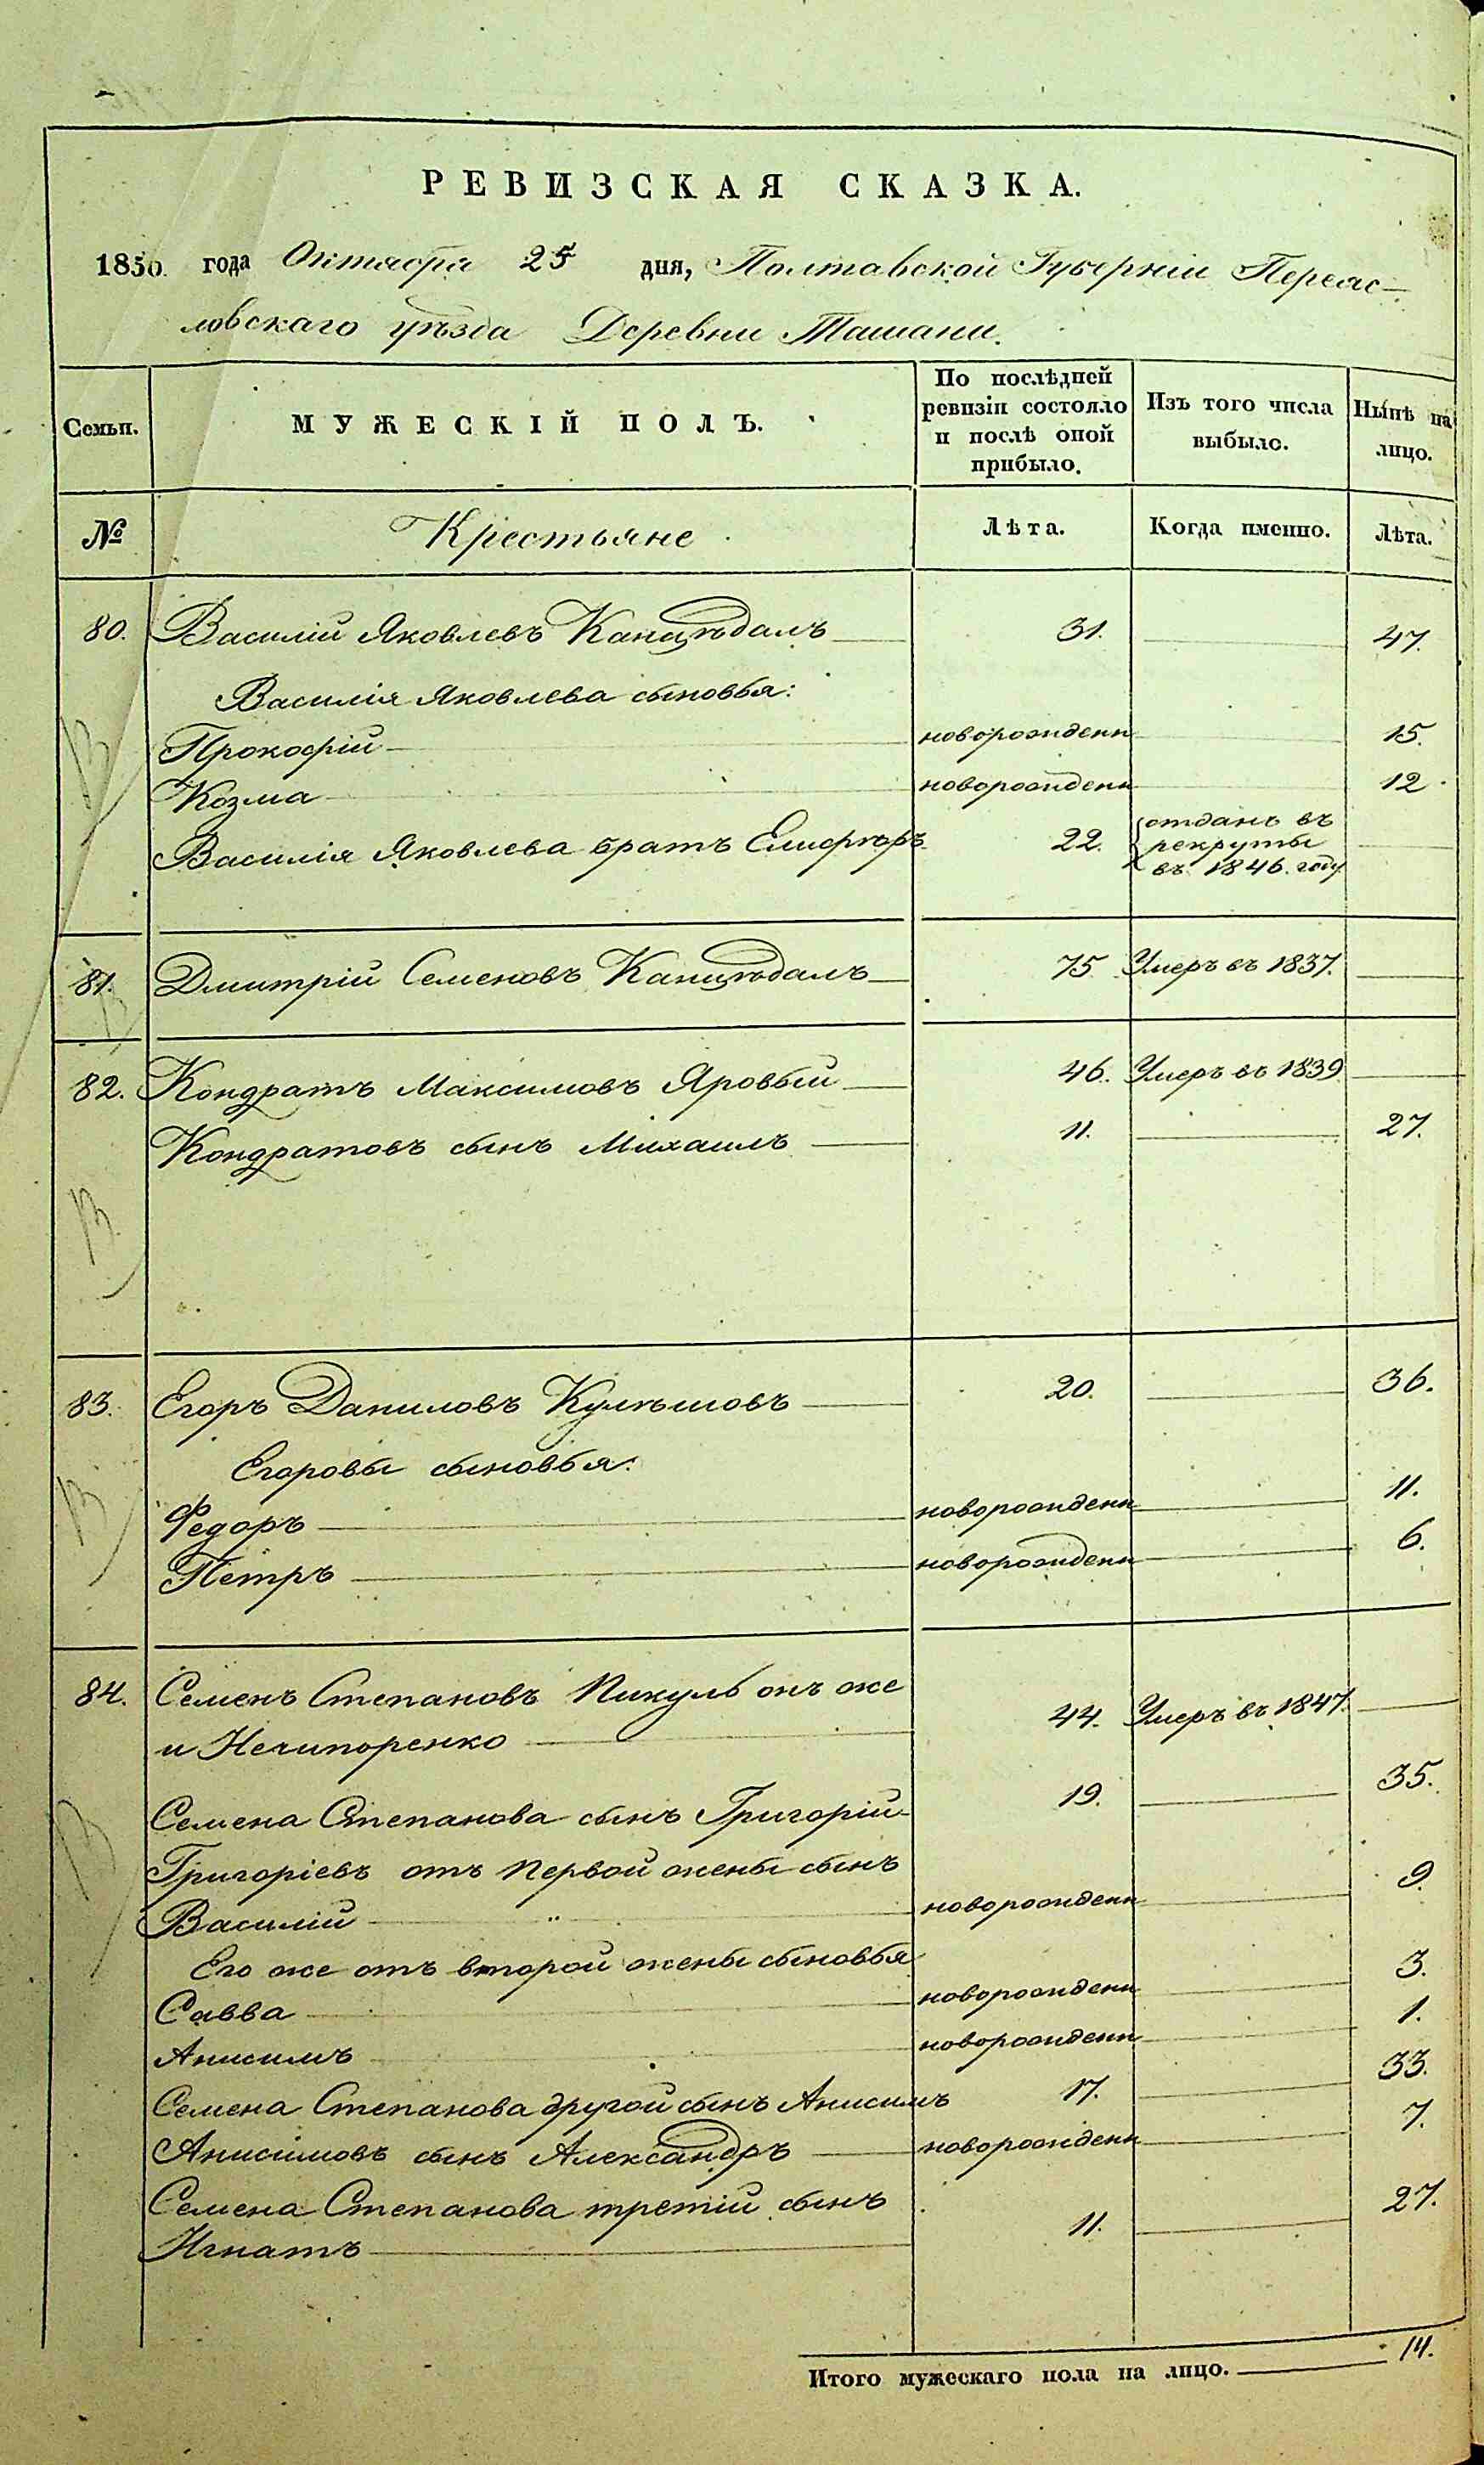 РЕВИЗСКАЯ СКАЗКА.
1850. года Октября 25 дня, Полтавской Губерніи Переяс-
ловскаго уѣзда Деревни Ташани.
Семьи. МУЖЕСКІЙ ПОЛЪ. По послѣдней ревизіи состояло и послѣ оной прибыло. Изъ того числа выбыло. Нынѣ на лицо.
№ Крестьяне Лѣта. Когда именно. Лѣта.
80. Василій Яковлевъ Канцѣдалъ 31. 47.
Василія Яковлева сыновья:
Прокофій новорожденн 15.
Козма новорожденн 12.
Василія Яковлева братъ Елиферъ 22. отданъ въ рекруты въ 1846. году
81. Дмитрій Семеновъ Канцѣдалъ 75. Умеръ въ 1837.
82. Кондратъ Максимовъ Яровый 46. Умеръ въ 1839
Кондратовъ сынъ Михаилъ 11. 27.
83. Егоръ Даниловъ Кулѣшовъ 20. 36.
Егоровы сыновья:
Федоръ новорожденн 11.
Петръ новорожденн 6.
84. Семенъ Степановъ Пикуль онъ же
и Нечипоренко 44. Умеръ въ 1847.
Семена Степанова сынъ Григорій 19. 35.
Григоріевъ отъ первой жены сынъ
Василій новорожденн 9.
Его же отъ второй жены сыновья
Савва новорожденн 3.
Анисимъ новорожденн 1.
Семена Степанова другой сынъ Анисимъ 17. 33.
Анисимовъ сынъ Александръ новорожденн 7.
Семена Степанова третій сынъ
Игнатъ 11. 27.
Итого мужескаго пола на лицо. 14.